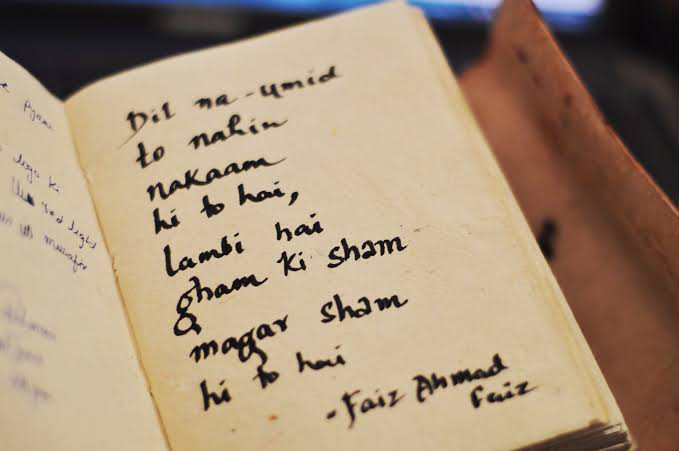 Dil na-umid
to nahin
nakaam
hi to hai,
lambi hai
gham ki sham
magar sham
hi to hai
-Faiz Ahmad
Faiz
logo ki
red light